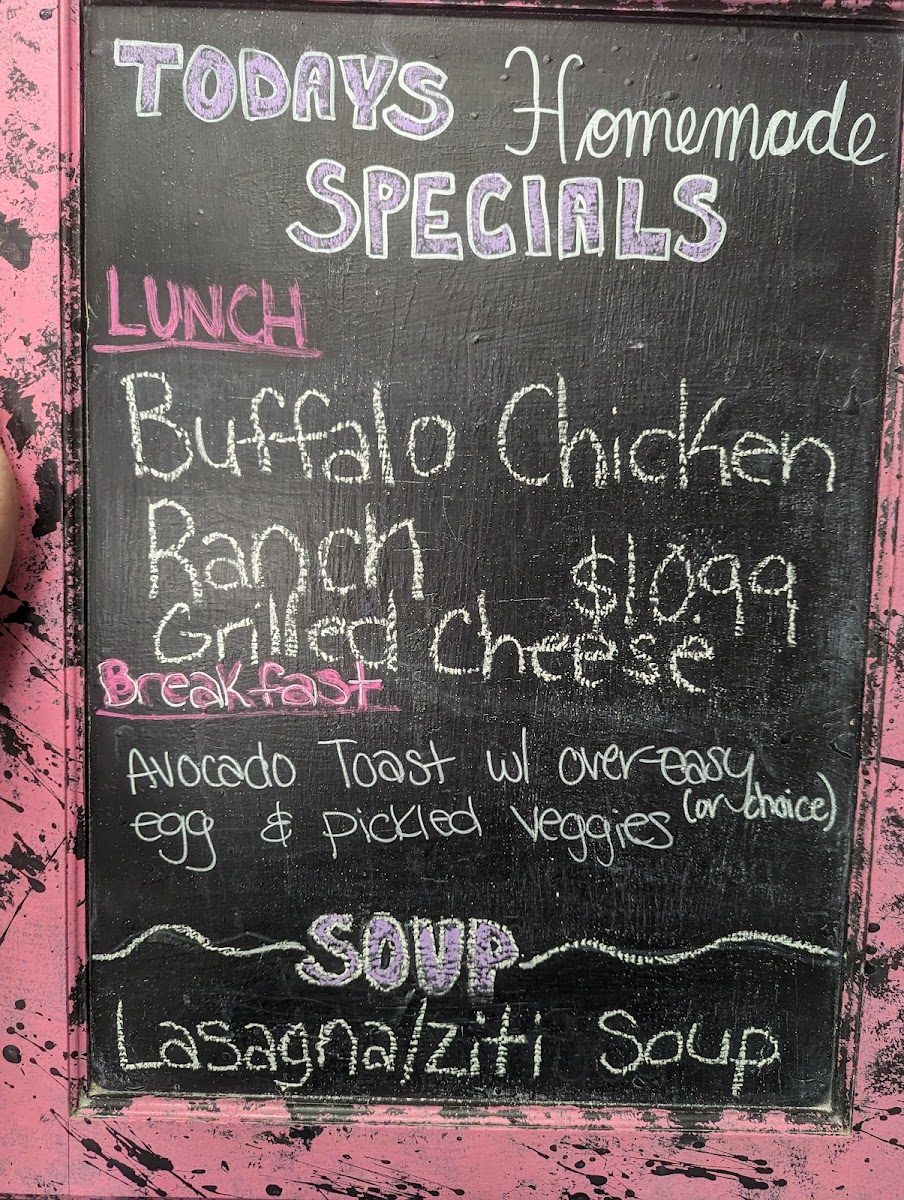 TODAYS Homemade
SPECIALS
LUNCH
Buffalo Chicken
Ranch $10.99
Grilled Cheese
Breakfast
Avocado Toast w/ over-easy
egg & pickled veggies (or choice)
SOUP
Lasagna/ziti Soup